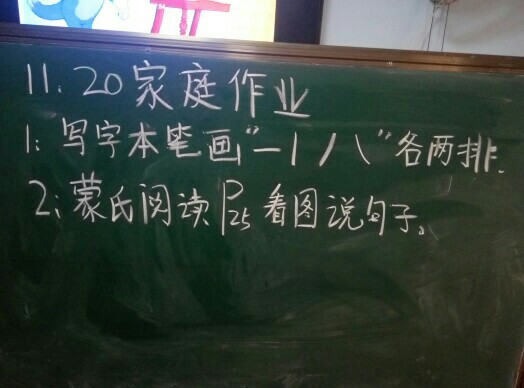 11.20家庭作业
1:写字本笔画“一丨丿㇏”各两排.
2:蒙氏阅读P25看图说句子。